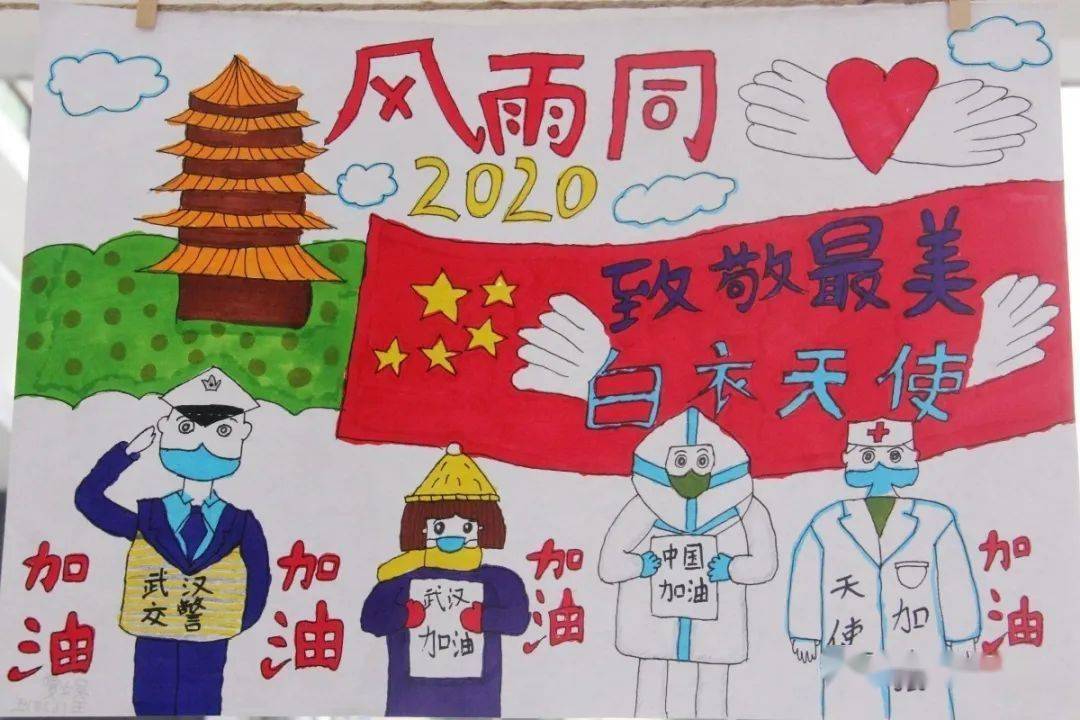 风雨同
2020
致敬最美
白衣天使
武汉
交警
武汉
加油
中国
加油
天使
加
加油
加油
加油
加油